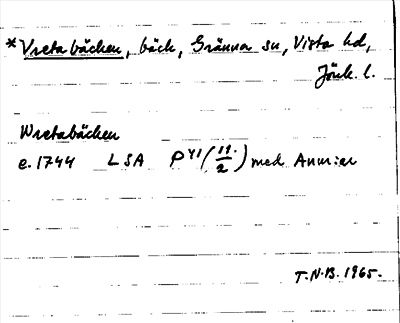 *Vretabäcken, bäck, Gränna sn, Vista hd,
Jönk. l.
Wretabäcken
e. 1744 LSA P 41 (11/2) med Anm:ar
T.N.B. 1965.